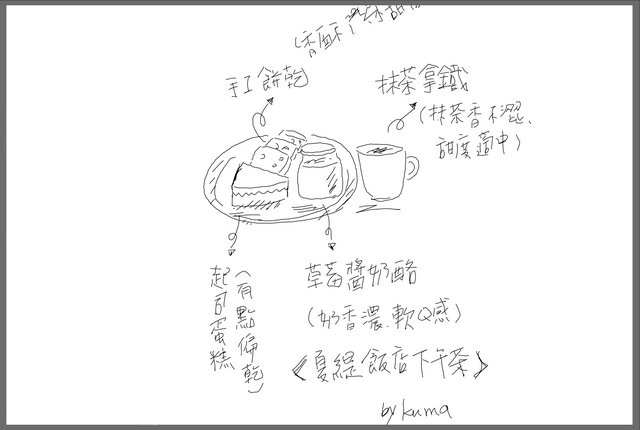 (香酥
手工餅乾
抹茶拿鐵
(抹茶香不澀、
甜度適中)
起司蛋糕
(有點偏乾)
草莓醬奶酪
(奶香濃、軟Q感)
《夏緹飯店下午茶》
by kuma